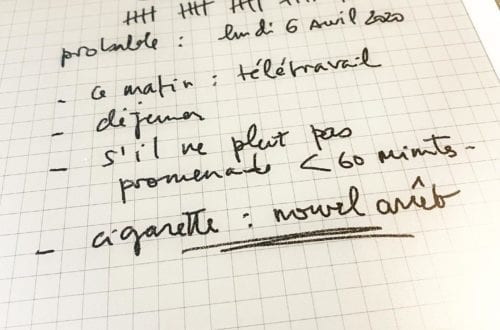 probable : lundi 6 avril 2020
- ce matin : télétravail
- déjeuner
- s'il ne pleut pas
promenade < 60 minutes -
- cigarette : nouvel arrêt